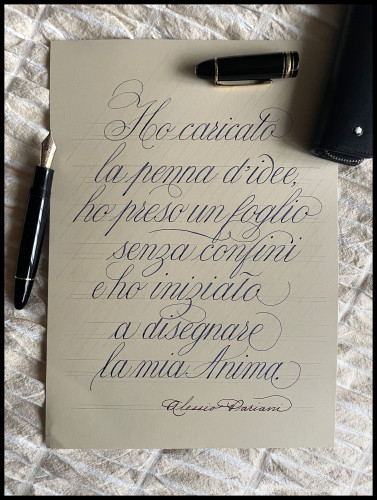 Ho caricato
la penna d'idee,
ho preso un foglio
senza confini
e ho iniziato
a disegnare
la mia Anima.
Alessio Dariani